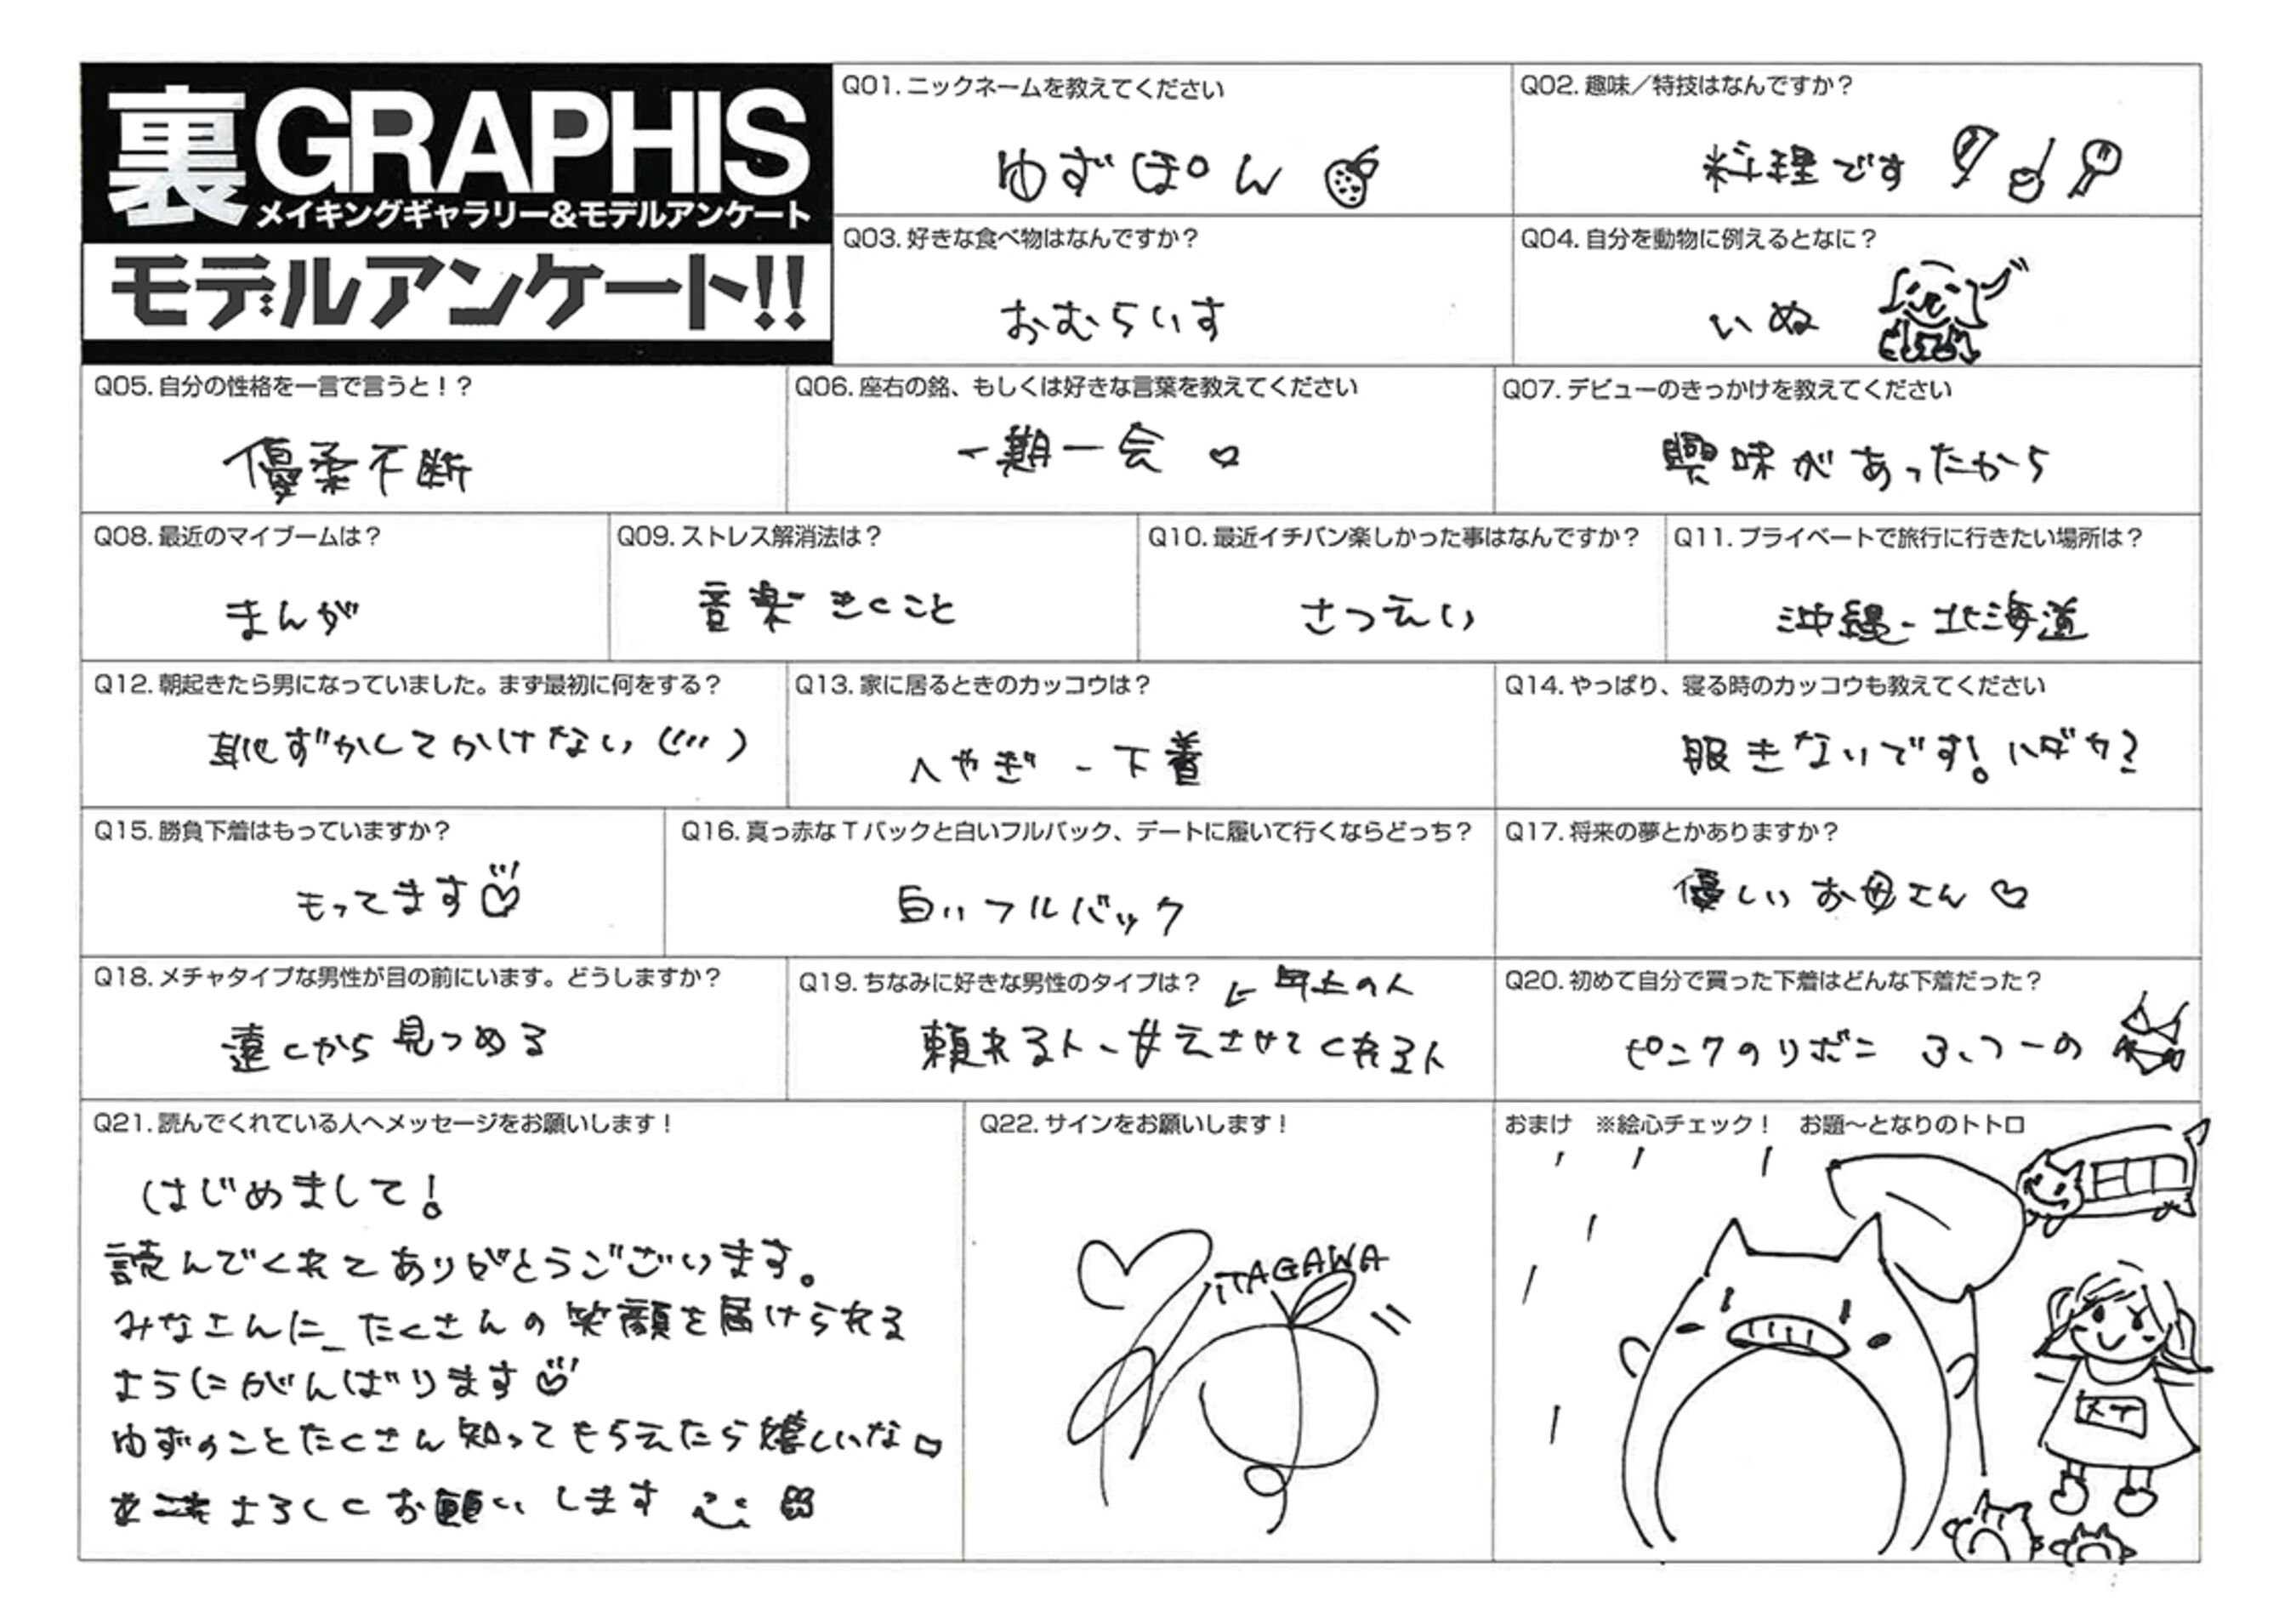 裏GRAPHIS
メイキングギャラリー&モデルアンケート
モデルアンケート!!
Q01. ニックネームを教えてください
ゆずぽん
Q02. 趣味／特技はなんですか？
料理です
Q03. 好きな食べ物はなんですか？
おむらいす
Q04. 自分を動物に例えるとなに？
いぬ
Q05. 自分の性格を一言で言うと！？
優柔不断
Q06. 座右の銘、もしくは好きな言葉を教えてください
一期一会♡
Q07. デビューのきっかけを教えてください
興味があったから
Q08. 最近のマイブームは？
まんが
Q09. ストレス解消法は？
音楽きくこと
Q10. 最近イチバン楽しかった事はなんですか？
さつえい
Q11. プライベートで旅行に行きたい場所は？
沖縄、北海道
Q12. 朝起きたら男になっていました。まず最初に何をする？
恥ずかしくてかけない
Q13. 家に居るときのカッコウは？
へやぎ、下着
Q14. やっぱり、寝る時のカッコウも教えてください
服きないです！ハダカ？
Q15. 勝負下着はもっていますか？
もってます♡
Q16. 真っ赤なTバックと白いフルバック、デートに履いて行くならどっち？
白いフルバック
Q17. 将来の夢とかありますか？
優しいお母さん♡
Q18. メチャタイプな男性が目の前にいます。どうしますか？
遠くから見つめる
Q19. ちなみに好きな男性のタイプは？ ← 年上の人
頼れる人、甘えさせてくれる人
Q20. 初めて自分で買った下着はどんな下着だった？
ピンクのリボン ふつーの
Q21. 読んでくれている人へメッセージをお願いします！
はじめまして！
読んでくれてありがとうございます。
みなさんに、たくさんの笑顔を届けられる
ようにがんばります♡
ゆずのことたくさん知ってもらえたら嬉しいな♡
よろしくお願いします
Q22. サインをお願いします！
ITAGAWA
おまけ ※絵心チェック！ お題〜となりのトトロ
メイ